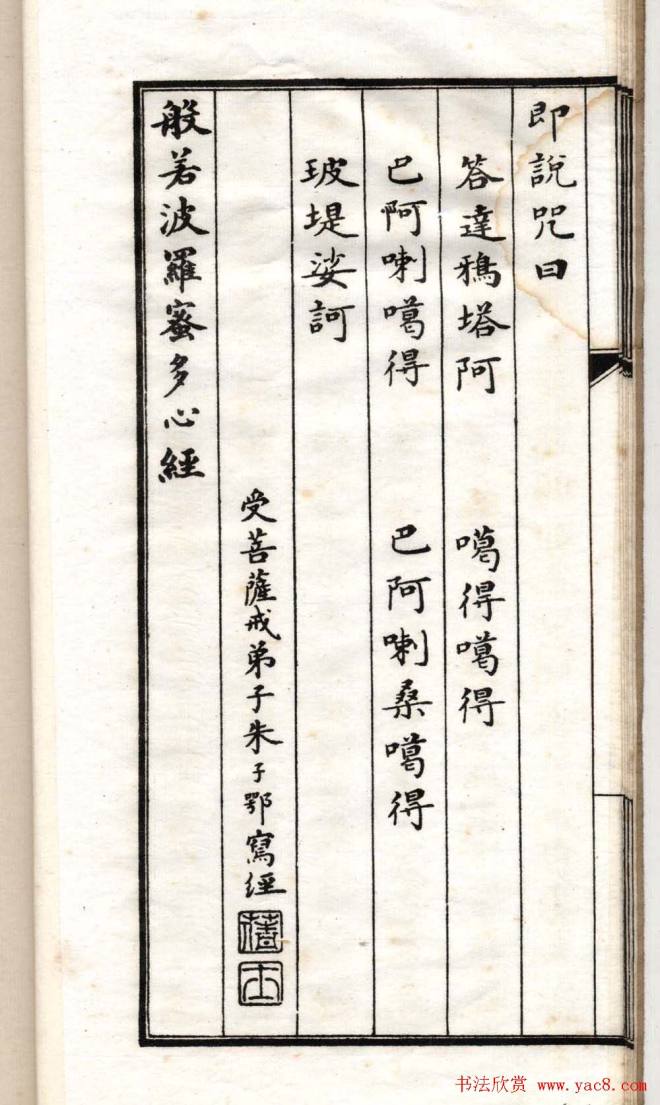 即說咒曰
答達鴉塔阿　噶得噶得
巴阿喇噶得　巴阿喇桑噶得
玻堤娑訶
受菩薩戒弟子朱子鄂寫經
般若波羅蜜多心經
书法欣赏 www.yac8.com